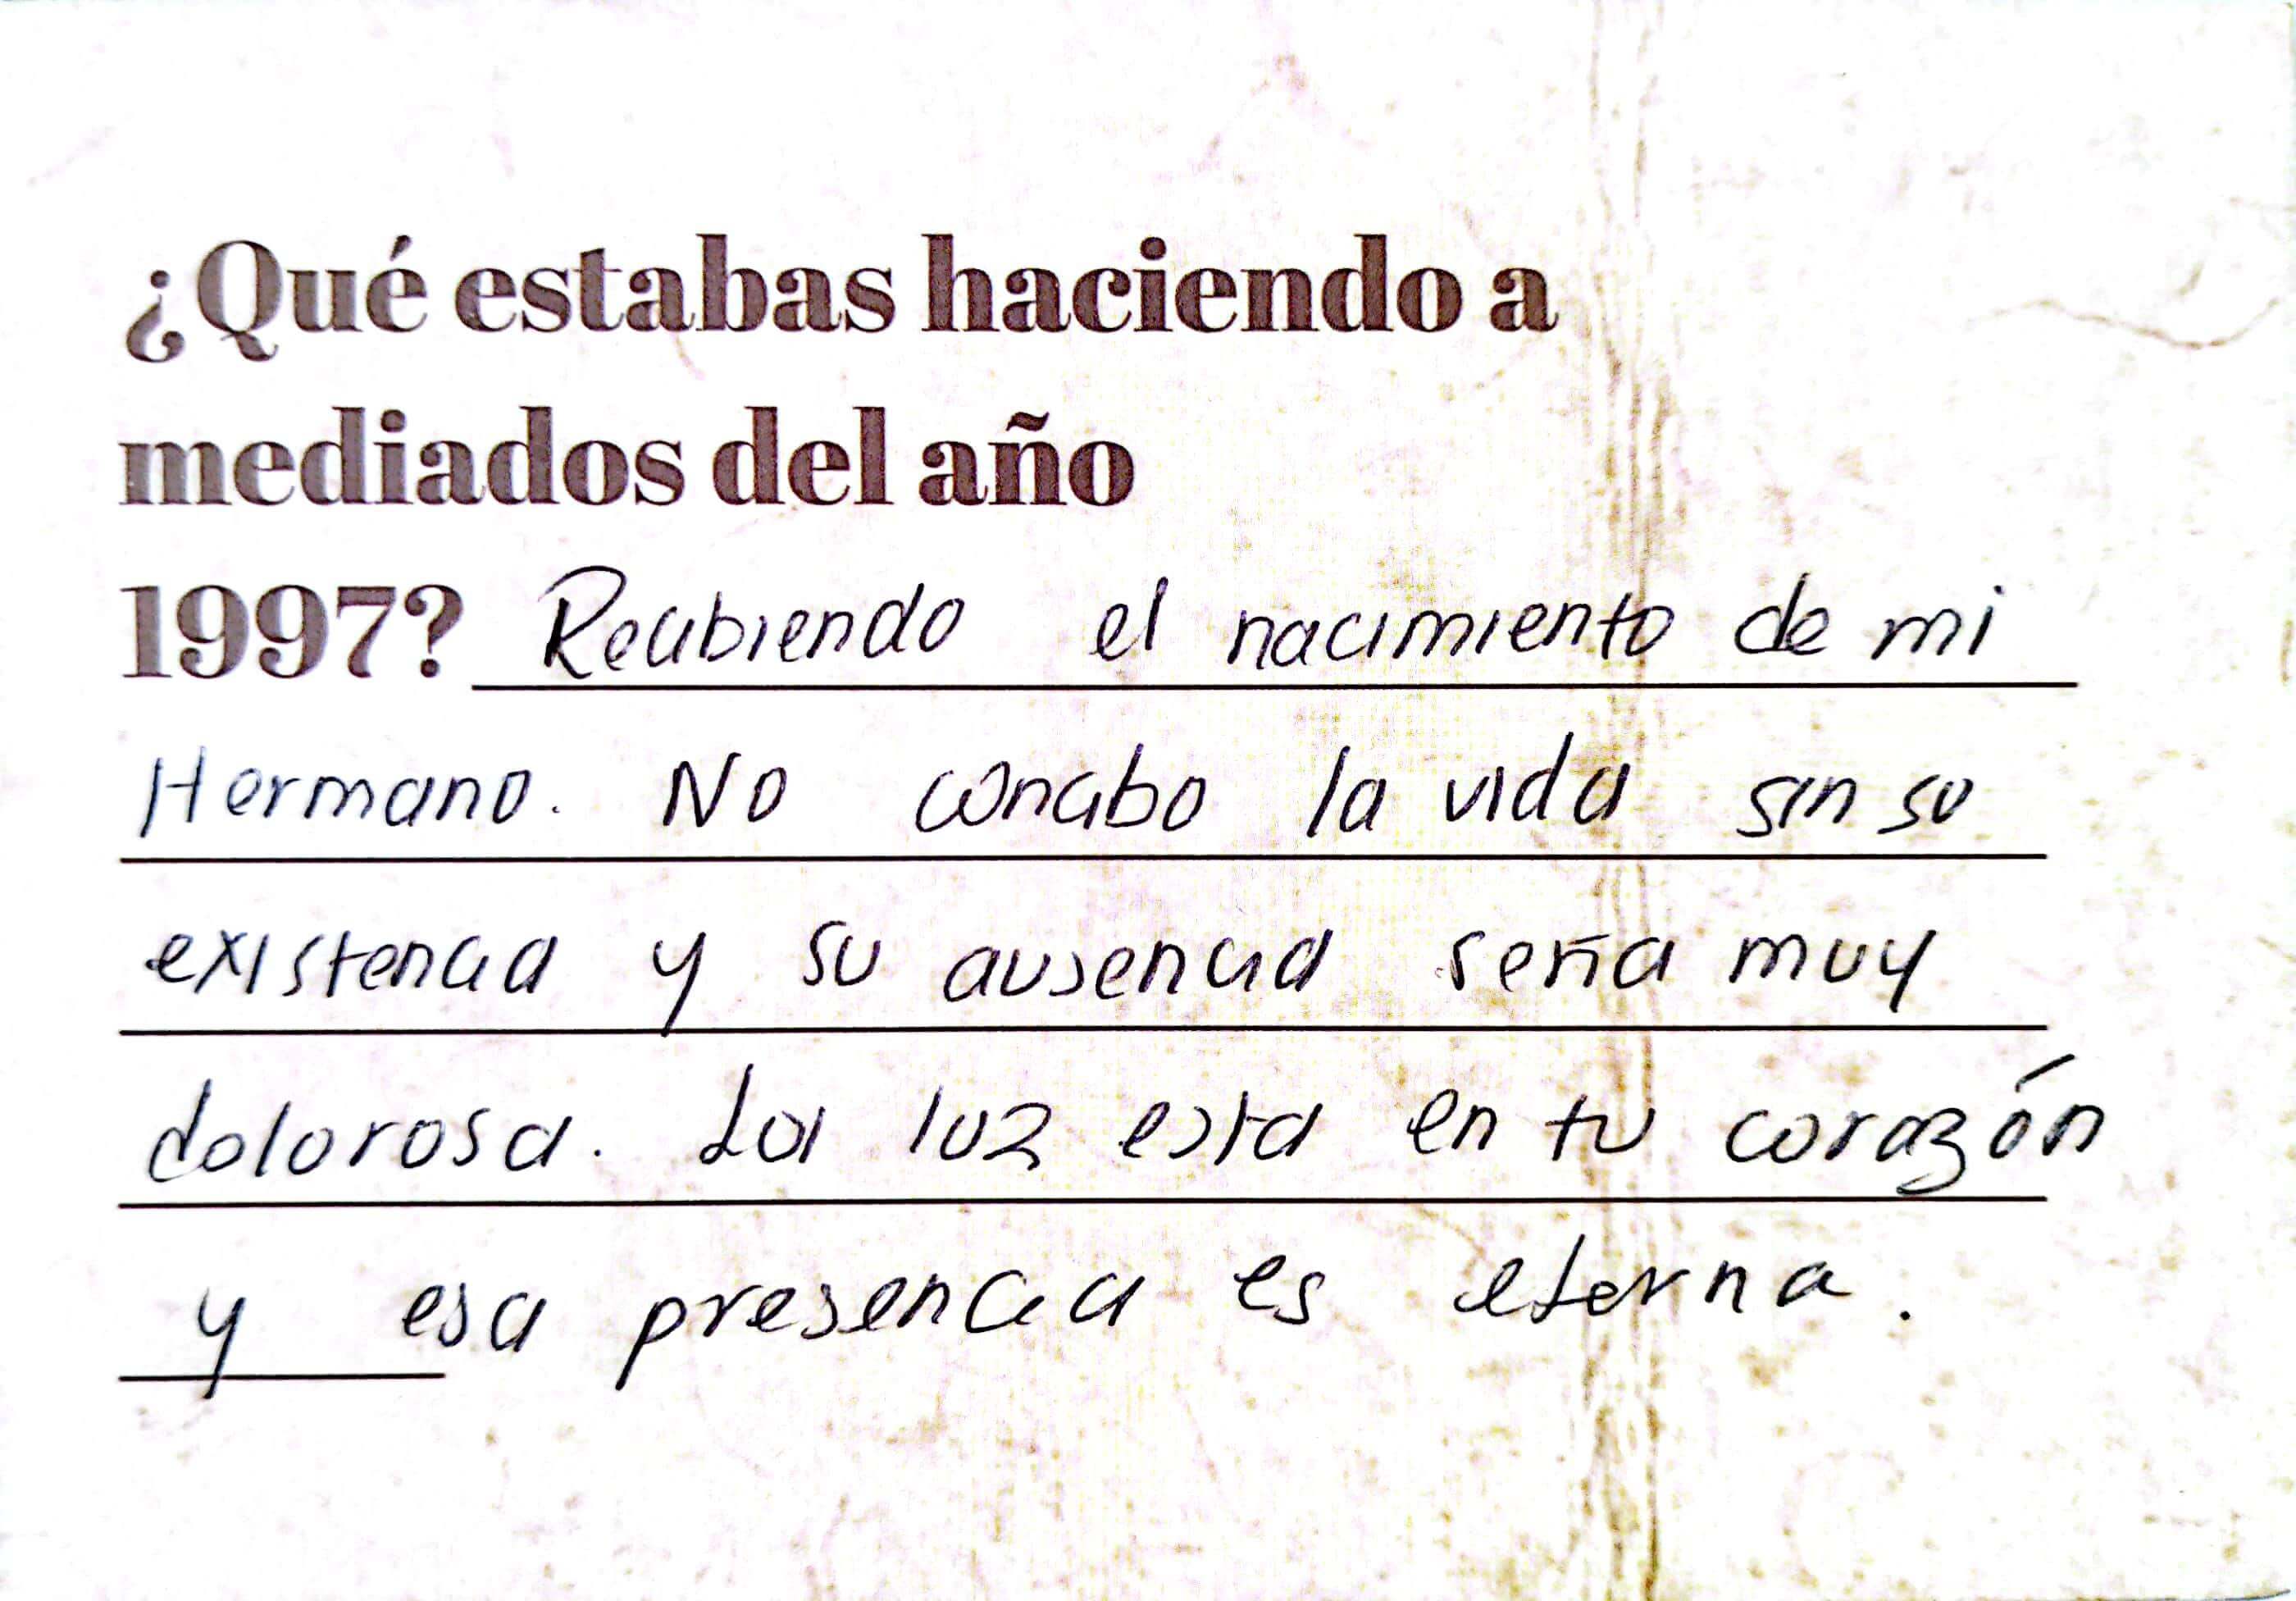 ¿Qué estabas haciendo a
mediados del año
1997? Recibiendo el nacimiento de mi
Hermano. No concibo la vida sin su
existencia y su ausencia sería muy
dolorosa. La luz esta en tu corazón
y esa presencia es eterna.